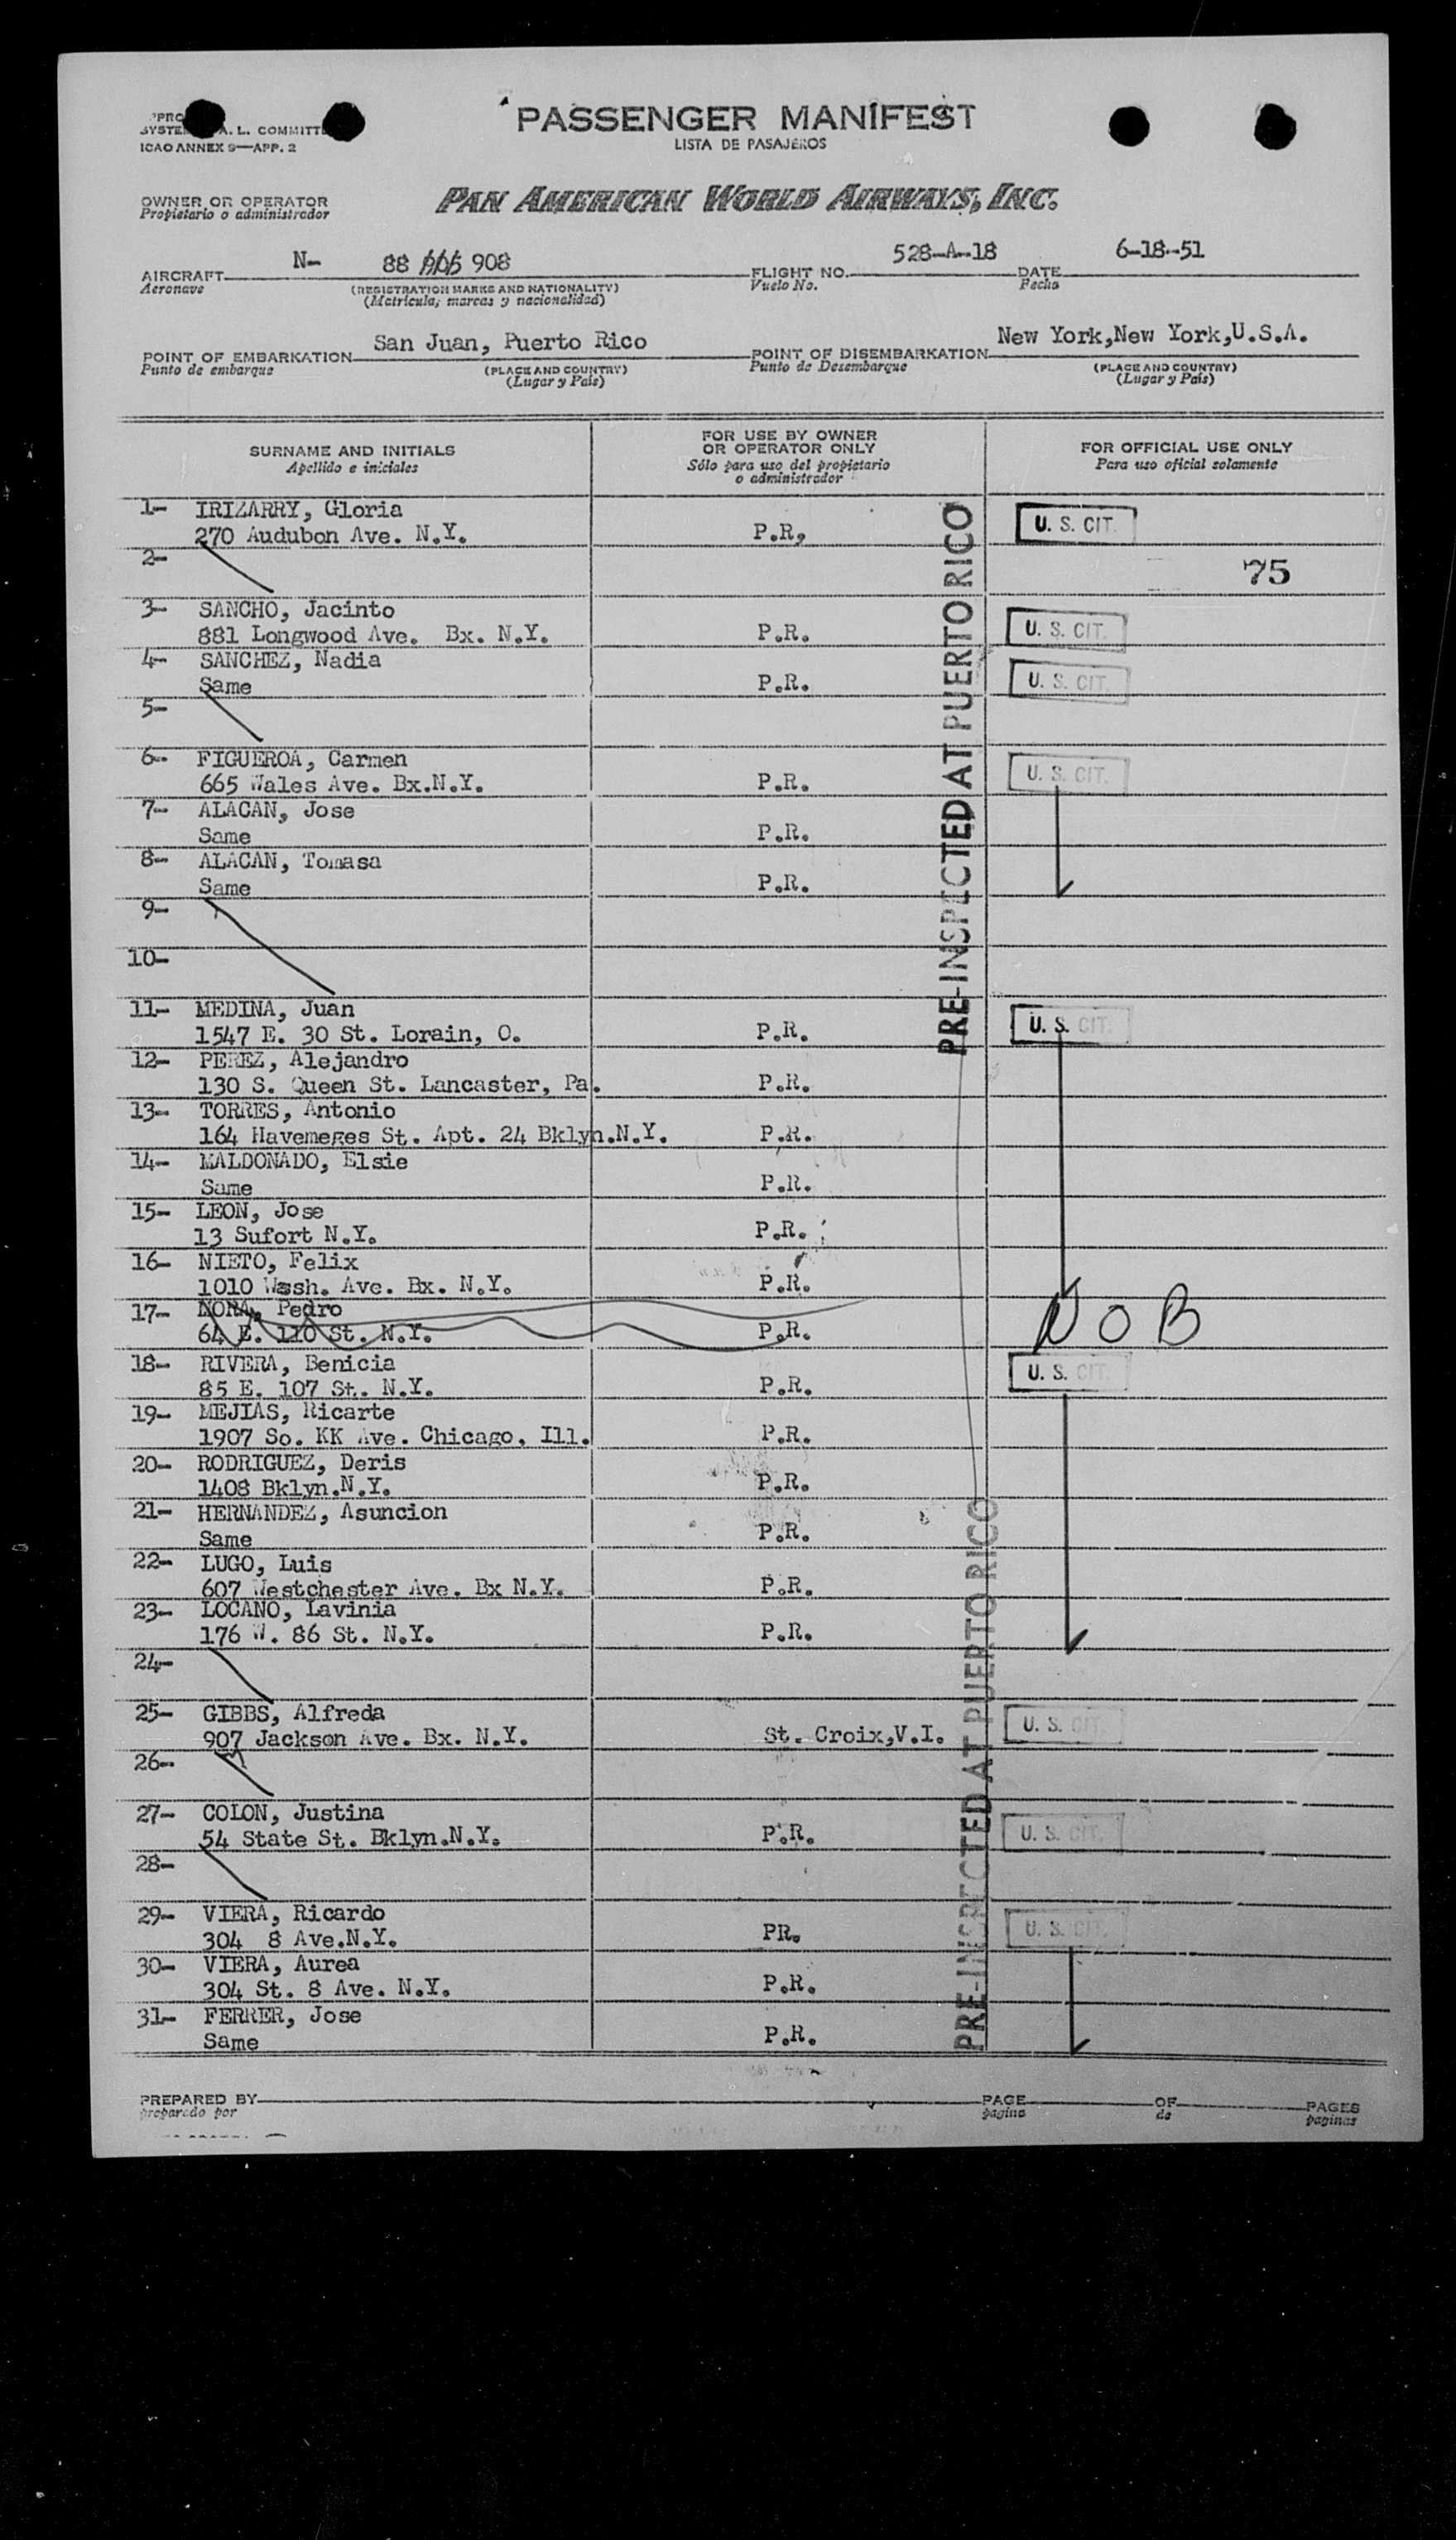 PASSENGER MANIFEST
LISTA DE PASAJEROS
A. L. COMMITT
ICAO ANNEX 9—APP. 2
OWNER OR OPERATOR
Propietario o administrador
PAN AMERICAN WORLD AIRWAYS, INC.
AIRCRAFT N- 88 908
Aeronave
(REGISTRATION MARKS AND NATIONALITY)
(Matrícula, marcas y nacionalidad)
FLIGHT NO. 528-A-18
Vuelo No.
DATE 6-18-51
Fecha
POINT OF EMBARKATION San Juan, Puerto Rico
Punto de embarque
(PLACE AND COUNTRY)
(Lugar y País)
POINT OF DISEMBARKATION New York,New York,U.S.A.
Punto de Desembarque
(PLACE AND COUNTRY)
(Lugar y País)
SURNAME AND INITIALS
Apellido e iniciales
FOR USE BY OWNER
OR OPERATOR ONLY
Sólo para uso del propietario
o administrador
FOR OFFICIAL USE ONLY
Para uso oficial solamente
1- IRIZARRY, Gloria
270 Audubon Ave. N.Y. P.R, U. S. CIT.
2- 75
3- SANCHO, Jacinto
881 Longwood Ave. Bx. N.Y. P.R. U. S. CIT.
4- SANCHEZ, Nadia
Same P.R. U. S. CIT.
5-
6- FIGUEROA, Carmen
665 Wales Ave. Bx.N.Y. P.R. U. S. CIT.
7- ALACAN, Jose
Same P.R.
8- ALACAN, Tomasa
Same P.R.
9-
10-
PRE-INSPECTED AT PUERTO RICO
11- MEDINA, Juan
1547 E. 30 St. Lorain, O. P.R. U. S. CIT.
12- PEREZ, Alejandro
130 S. Queen St. Lancaster, Pa. P.R.
13- TORRES, Antonio
164 Havemeges St. Apt. 24 Bklyn.N.Y. P.R.
14- MALDONADO, Elsie
Same P.R.
15- LEON, Jose
13 Sufort N.Y. P.R.
16- NIETO, Felix
1010 Wash. Ave. Bx. N.Y. P.R.
17- NORA, Pedro
64 E. 110 St. N.Y. P.R. NOB
18- RIVERA, Benicia
85 E. 107 St. N.Y. P.R. U. S. CIT.
19- MEJIAS, Ricarte
1907 So. KK Ave. Chicago, Ill. P.R.
20- RODRIGUEZ, Deris
1408 Bklyn.N.Y. P.R.
21- HERNANDEZ, Asuncion
Same P.R.
22- LUGO, Luis
607 Westchester Ave. Bx N.Y. P.R.
23- LOCANO, Lavinia
176 W. 86 St. N.Y. P.R.
24-
25- GIBBS, Alfreda
907 Jackson Ave. Bx. N.Y. St. Croix,V.I. U. S. CIT.
26-
27- COLON, Justina
54 State St. Bklyn.N.Y. P.R. U. S. CIT.
28-
29- VIERA, Ricardo
304 8 Ave.N.Y. PR. U. S. CIT.
30- VIERA, Aurea
304 St. 8 Ave. N.Y. P.R.
31- FERRER, Jose
Same P.R.
PRE-INSPECTED AT PUERTO RICO
PREPARED BY PAGE OF PAGES
preparado por pagina de paginas